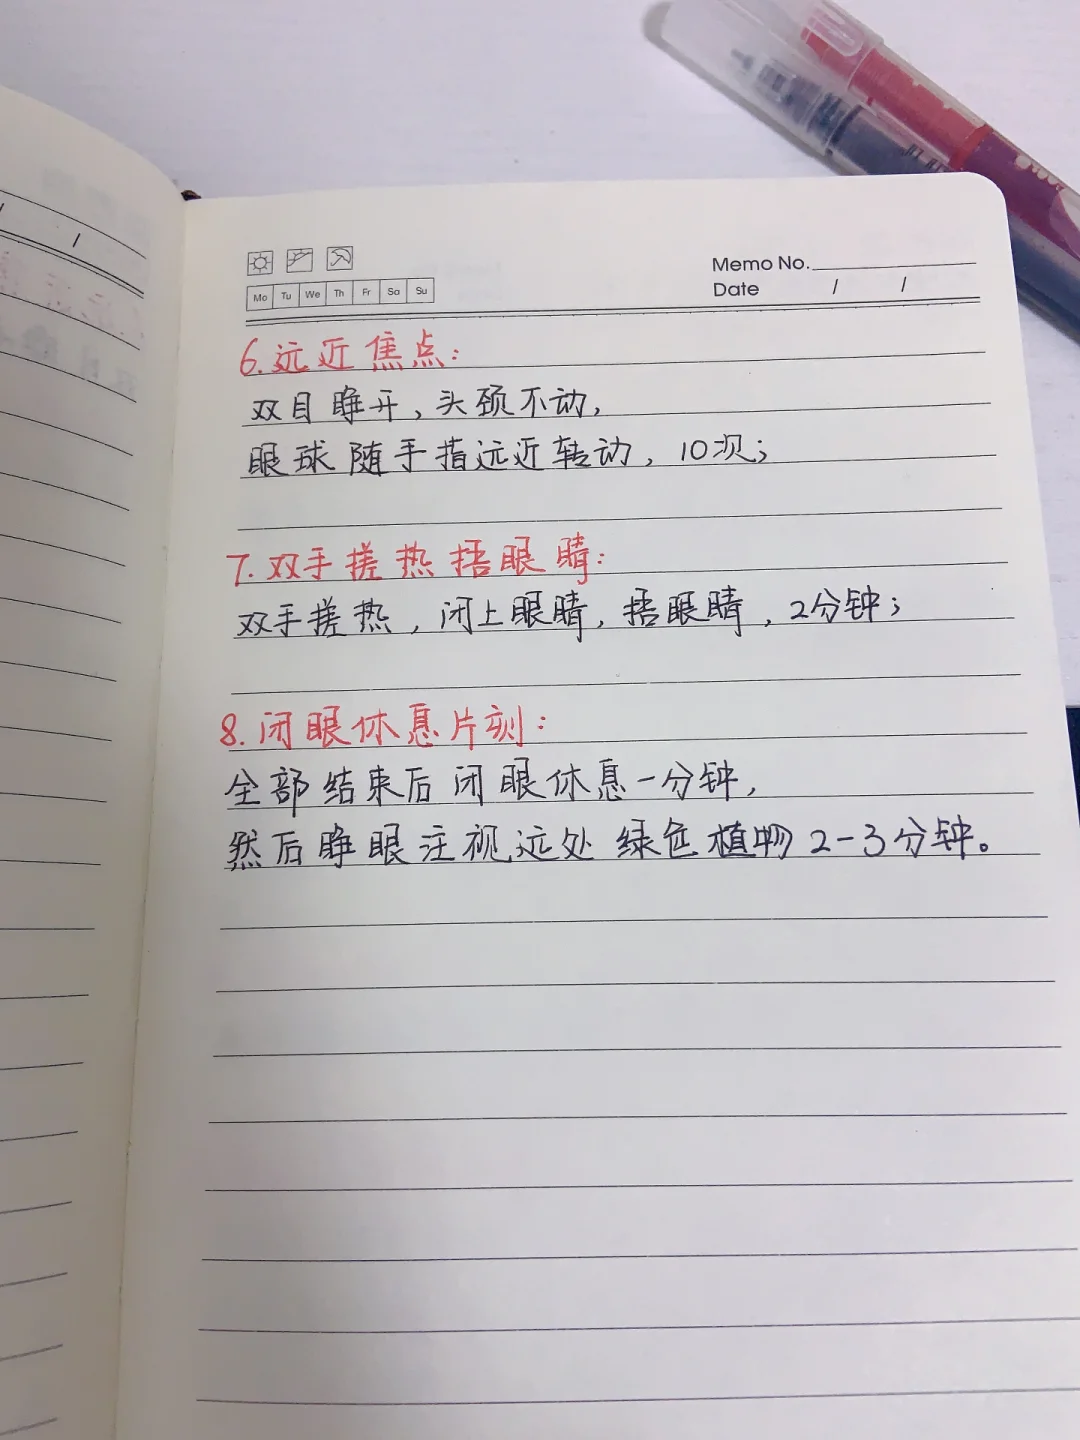 Memo No.
Mo Tu We Th Fr Sa Su
Date / /
6.远近焦点:
双目睁开,头颈不动,
眼球随手指远近转动,10次;
7.双手搓热捂眼睛:
双手搓热,闭上眼睛,捂眼睛,2分钟;
8.闭眼休息片刻:
全部结束后闭眼休息一分钟,
然后睁眼注视远处绿色植物2-3分钟。